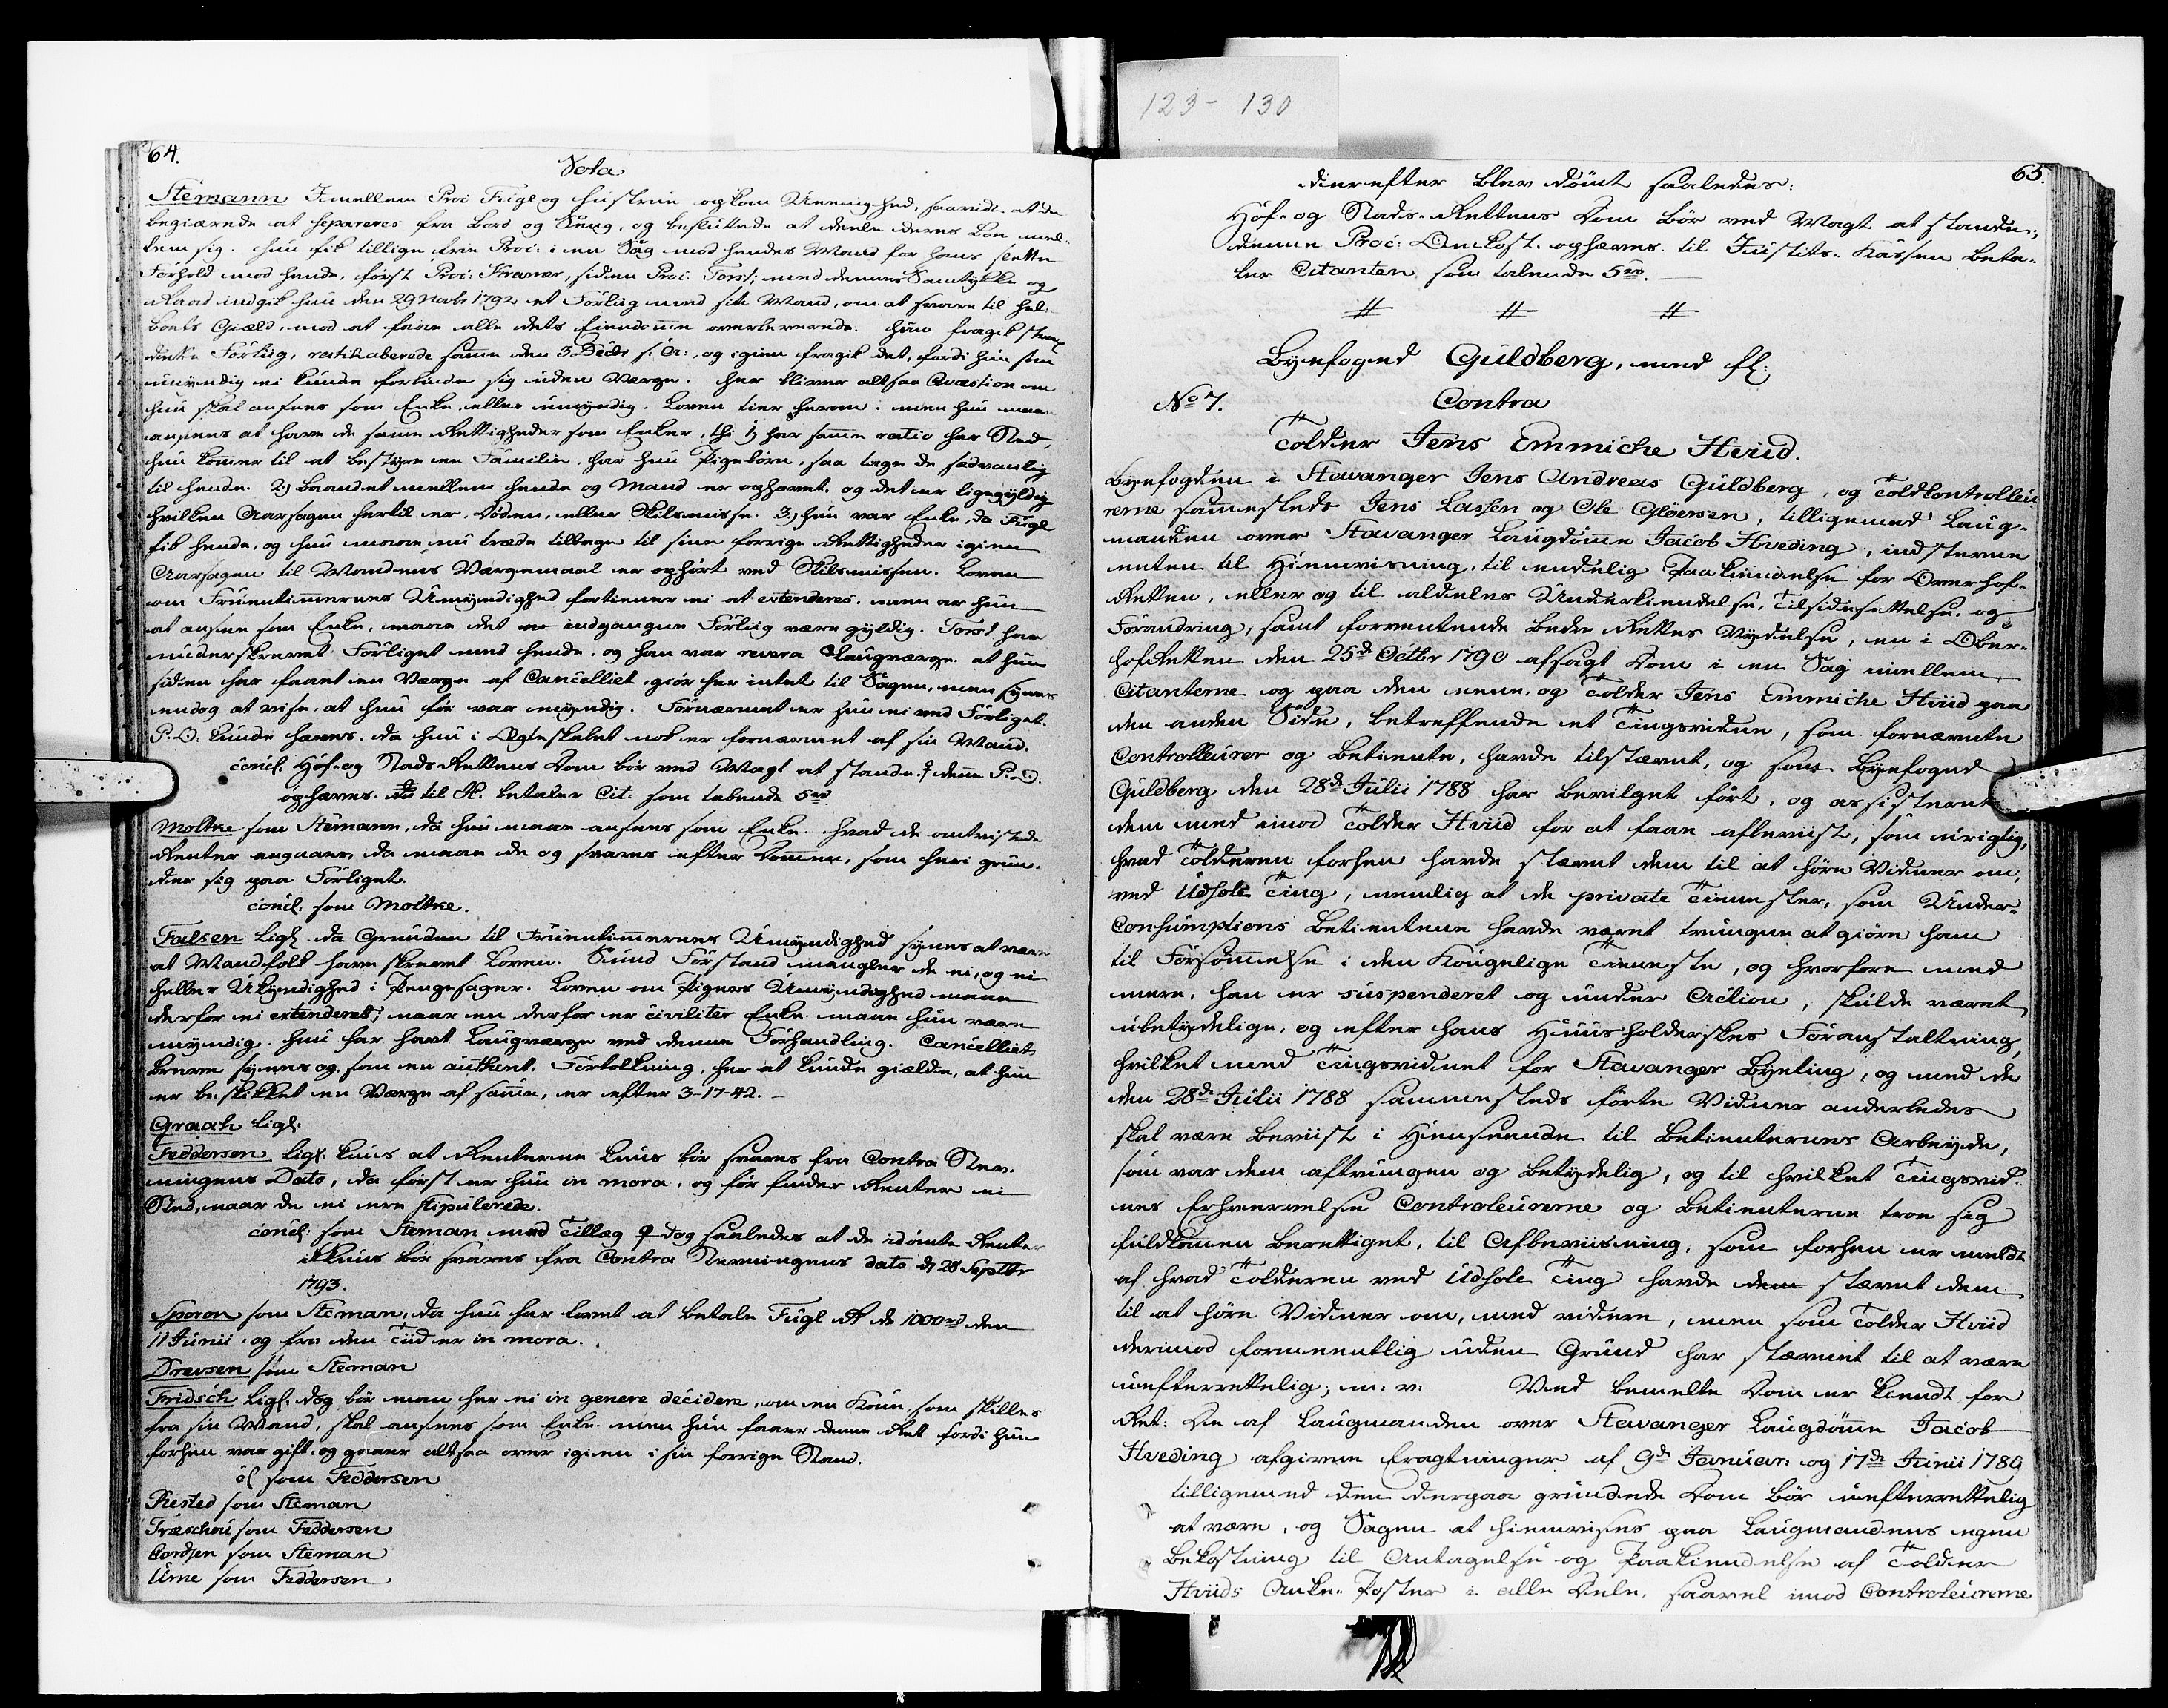 123-130
64.
Vota
Stemann Imellem Proc: Fugl og Hustrue opkom Uenighed, saavidt at de
begiærede at separeres fra Bord og Seng, og besluttede at deele deres Boe mel-
lem sig. Hun fik tillige frie Proc: i en Sag mod hendes Mand for hans slette
Forhold mod hende, først Proc: Kramer, siden Proc: Torst; med dennes Samtykke og
Raad indgik hun den 29 Novbr 1792 et Forlig med sin Mand, om at svare til hel-
boets Giæld, mod at faae alle dets Eiendomme overleverede. Hun fragik strax
dette Forlig, ratihaberede samme den 3 Decbr s: A:, og igien fragik det, fordi hun som
umyndig ei kunde forbinde sig uden Værge. Her bliver altsaa Qvæstion om
hun skal ansees som Enke eller umyndig. Loven tier herom: men hun maae
ansees at have de samme Rettigheder som Enker, thi 1) har samme ratio her Sted,
hun kommer til at bestyre en Familie, har hun Pigebørn, saa tages de sædvanlig
til hende. 2) Baandet mellem hende og Mand er ophævet, og det er ligegyldig
hvilken Aarsagen hertil er, Døden, eller Skilsmisse. 3) hun var Enke, da Fugl
fik hende, og hun maae nu træde tilbage til sine forrige Rettigheder igien
Aarsagen til Mandens Værgemaal er ophørt ved Skilsmissen. Loven
om Fruentimmernes Umyndighed fortiener ei at extenderes. men er hun
at ansee som Enke, maae det indgangne Forlig være gyldig. Torst har
underskrevet Forliget med hende, og han var revera Laugværge. at hun
siden har faaet en Værge af Cancelliet, giør her intet til Sagen, men synes
endog at vise, at hun før var myndig. Fornærmet er hun ei ved Forliget.
P: O: kunde hæves, da hun i Egteskabet nok er fornærmet af sin Mand.
concl. Hof- og Stads-Rettens Dom bør ved Magt at stande. denne P: O:
ophæves. til betaler Cit: som tabende 5rd.
Moltke som Stemann, da hun maae ansees som Enke. hvad de omtvistede
Renter angaaer, da maae de og svares efter Dommen, som heri grun-
der sig paa Forliget.
concl. som Moltke.
Falsen ligl. da Grunden til Fruentimmernes Umyndighed synes at være
at Mandfolk have skrevet Loven. Sund Forstand mangler de ei, og ei
heller Ukyndighed i Pengesager. Loven om Pigers Umyndighed maae
derfor ei extenderes; naar en derfor er civiliter Enke maae hun være
myndig. hun har havt Laugværge ved denne Forhandling. Cancelliets
Breve synes og, som en authent. Fortolkning, her at kunde giælde, at hun
er beskikket en Værge af samme, er efter 3-17-42.-
Graah ligl.
Feddersen ligl. kuns at Renterne kuns bør svares fra Contra Stev-
ningens Dato, da først er hun in mora, og før finder Renter ei
Sted, naar de ei ere stipulerede.
concl. som Steman med Tillæg dog saaledes at de idømte Renter
ikkuns bør svares fra Contra Stevningens dato d. 28 Septbr
1793.
Sporon som Steman, da hun har lovet at betale Fugl de 1000rd den
11 Junii, og fra den Tiid er in mora.
Drevsen som Steman
Fridsch ligl. dog bør man her ei in genere decidere, om en Kone, som skilles
fra sin Mand, skal ansees som Enke. men hun faaer denne Ret fordi hun
forhen var gift, og gaaer altsaa over igien i sin forrige Stand.
cl som Feddersen
Rested som Steman
Træschou som Feddersen
Cordsen som Steman
Urne som Feddersen
65.
derefter blev dømt saaledes:
Hof- og Stads-Rettens Dom bør ved Magt at stande;
denne Proc: Omkost. ophæves. til Justits-Kassen beta-
ler Citanten som tabende 5rd.
Byefoged Guldberg, med fl:
No 7. Contra
Tolder Jens Emmiche Hviid.
Byefogden i Stavanger Jens Andreas Guldberg, og Toldkontrolleu-
rerne sammesteds Jens Lassen og Ole Gløersen, tilligemed Laug-
manden over Stavanger Laugdømme Jacob Hveding, indstevne
enten til Hiemvisning, til endelig Paakiendelse for Overhof-
Retten, eller og til aldeles Underkiendelse, Tilsidesettelse, og
Forandring, samt forventende bedre Rettes Nydelse, en i Ober-
hofretten den 25de Octbr 1790 afsagt Dom i en Sag mellem
Citanterne og paa den eene, og Tolder Jens Emmiche Hviid paa
den anden Side, betreffende et Tingsvidne, som fornævnte
Controlleurer og Betiente, havde tilstævnt, og som Byefoged
Guldberg den 28de Julii 1788 har bevilget ført, og assisteret
dem med imod Tolder Hviid for at faae afbeviist, som urigtig,
hvad Tolderen forhen havde stævnt dem til at høre Vidner om,
ved Udhole Ting, nemlig at de private Tienester, som Under-
Consumptions Betientene havde været tvungne at giøre ham
til Forsømmelse i den Kongelige Tieneste, og hvorfore med
mere, han er suspenderet og under Action, skulde været
ubetydelige, og efter hans Huusholderskes Foranstaltning,
hvilket med Tingsvidnet for Stavanger Byeting, og med de
den 28de Julii 1788 sammesteds førte Vidner anderledes
skal være beviist i Henseende til Betienternes Arbeyde,
som var dem aftvungen og betydelig, og til hvilket Tingsvid-
nes Erhvervelse Controleurerne og Betienterne troe sig
fuldkommen berettiget, til Afbeviisning, som forhen er meldt
af hvad Tolderen ved Udhole Ting havde dem stævnt dem
til at høre Vidner om, med videre, men som Tolder Hviid
derimod formeentlig uden Grund har stævnet til at være
uefterrettelig; m: v: Ved bemelte Dom er kiendt for
Ret: De af Laugmanden over Stavanger Laugdømme Jacob
Hveding afgivne Eragtninger af 9de Januar: og 17de Junii 1789
tilligemed den derpaa grundede Dom bør uefterrettelig
at være, og Sagen at hiemvises paa Laugmandens egen
Bekostning til Antagelse og Paakiendelse af Tolder
Hviids Anke-Poster i alle Dele, saavel imod Controleurerne